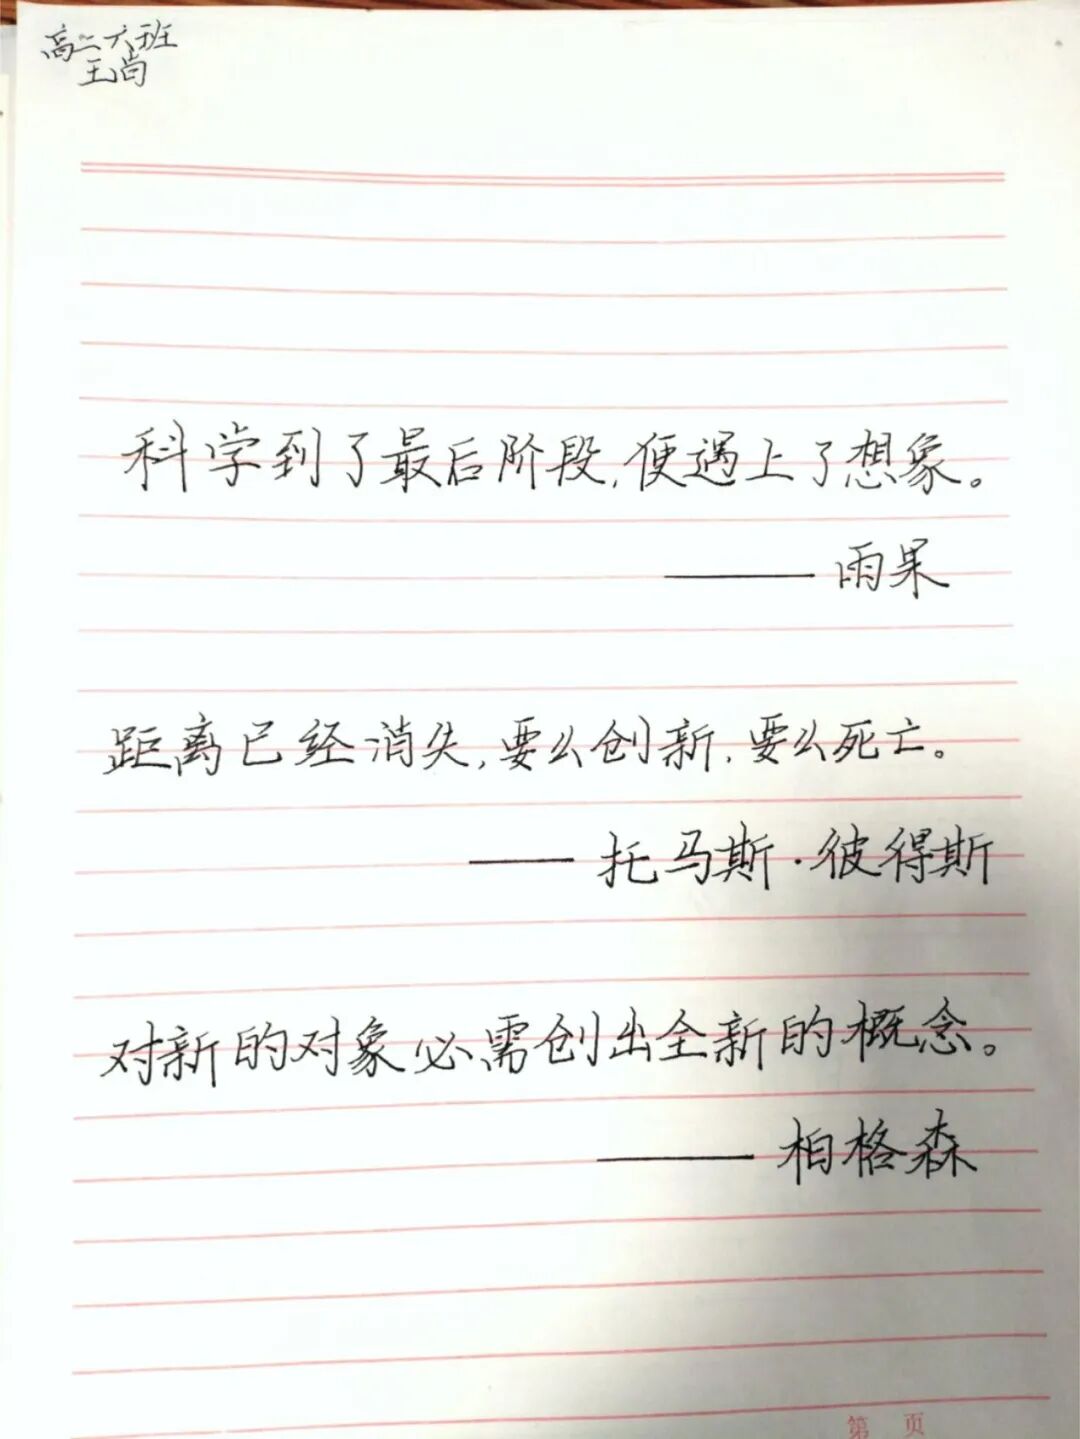 高二六班
王尚
科学到了最后阶段,便遇上了想象。
——雨果
距离已经消失,要么创新,要么死亡。
——托马斯·彼得斯
对新的对象必需创出全新的概念。
——柏格森
第 页